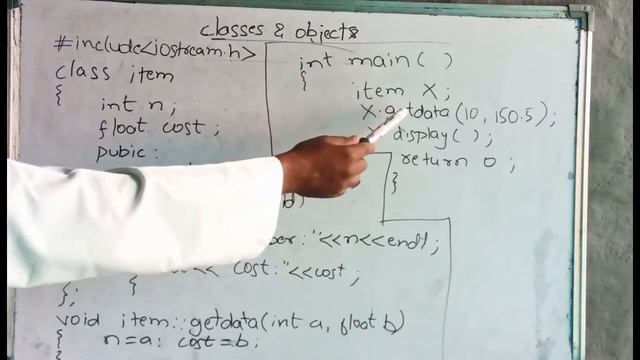 classes & objects
#include<iostream.h>
class item
{
int n;
float cost;
pubic:
ber:"<<n<<endl;
<< cost:"<<cost;
}
};
void item::getdata(int a, float b)
{ n=a: cost=b;
}
int main( )
{
item X;
X.getdata(10, 150.5);
display( );
return 0;
}